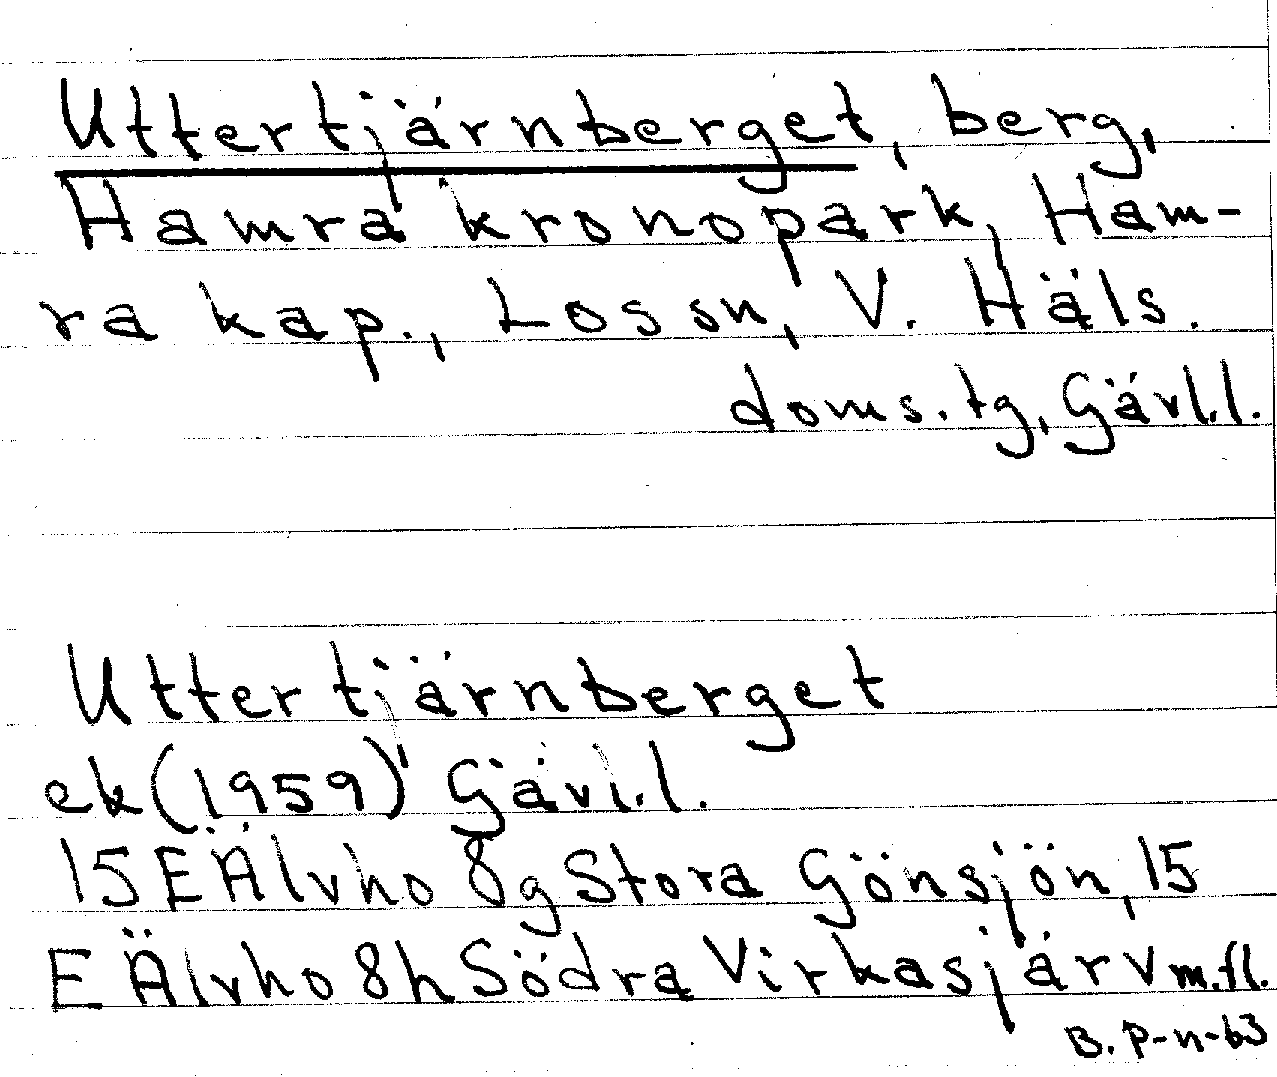 Uttertjärnberget, berg,
Hamra kronopark, Ham-
ra kap., Lossn, V. Häls.
doms.tg, Gävl.l.
Uttertjärnberget
ek(1959) Gävl.l.
15E Älvho 8g Stora Gönsjön, 15
E Älvho 8h Södra Virkasjärv m.fl.
B. P-n-63